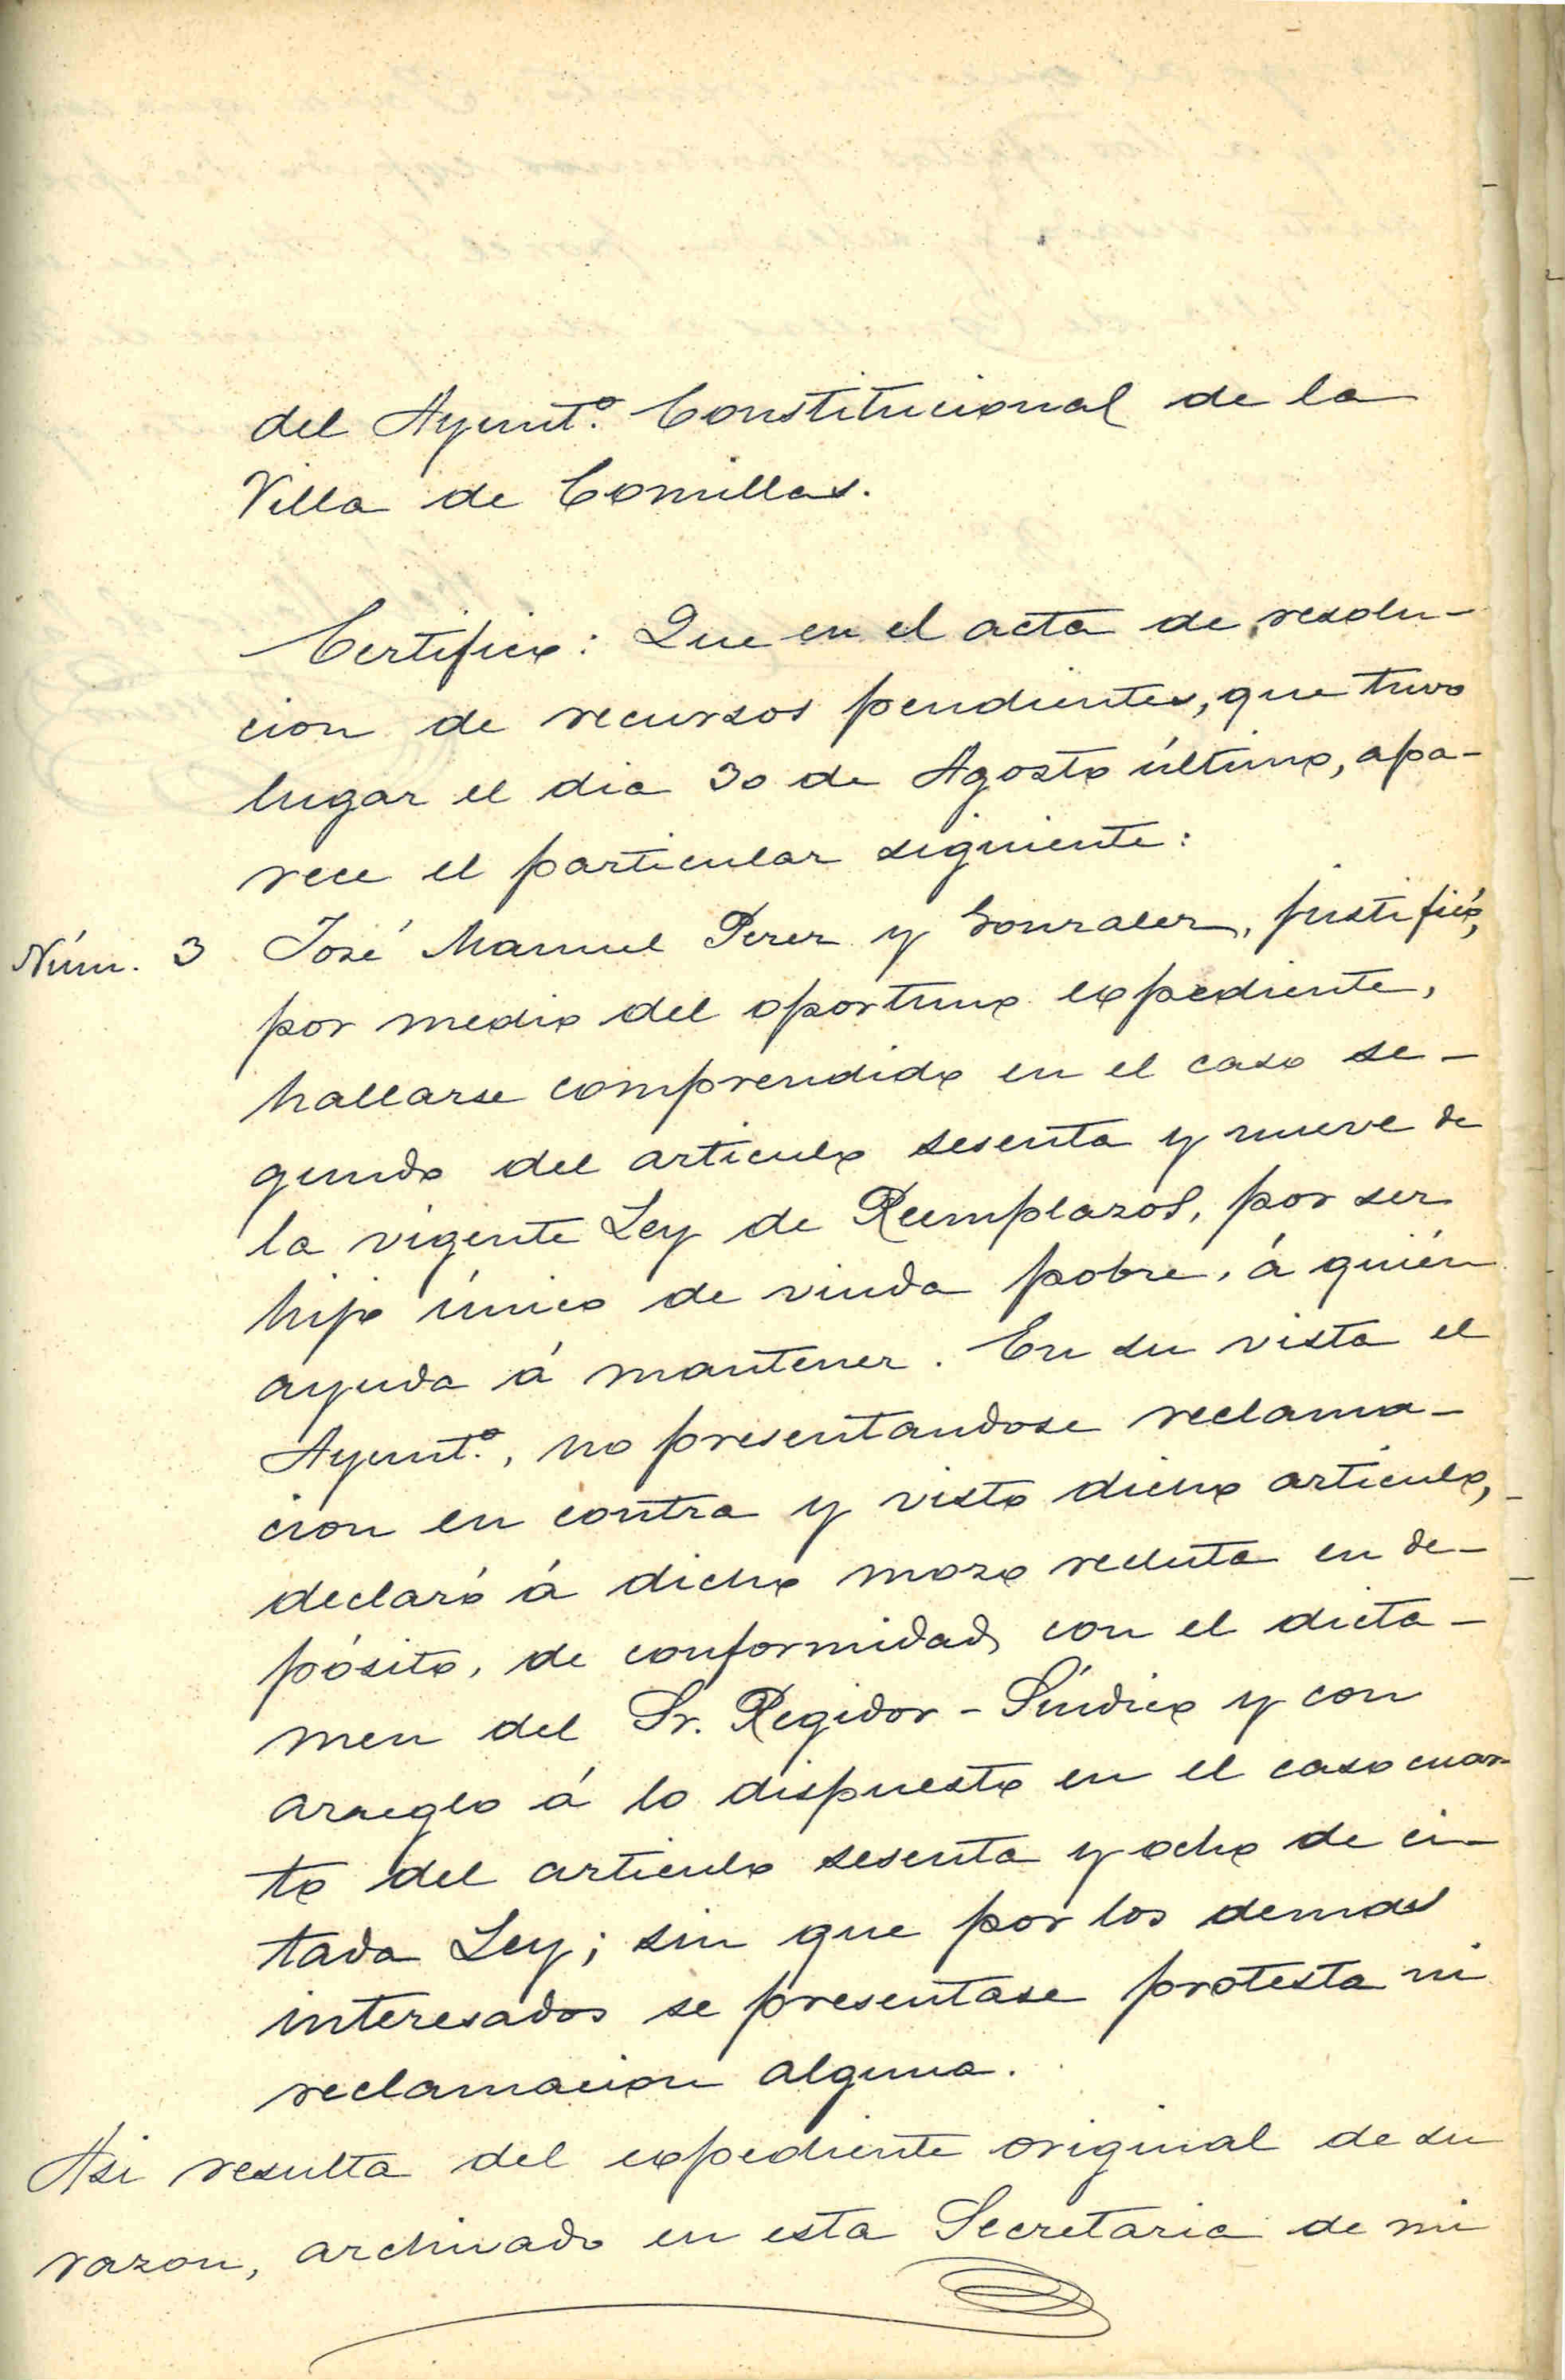 del Ayunt.º Constitucional de la
Villa de Comillas.
Certifico: Que en el acta de resolu-
cion de recursos pendientes, que tuvo
lugar el dia 30 de Agosto último, apa-
rece el particular siguiente:
Núm. 3 José Manuel Perez y Gonzalez, justificó,
por medio del oportuno expediente,
hallarse comprendido en el caso se-
gundo del articulo sesenta y nueve de
la vigente Ley de Reemplazos, por ser
hijo único de viuda pobre, á quién
ayuda á mantener. En su vista el
Ayunt.º, no presentandose reclama-
cion en contra y visto dicho articulo,
declaró á dicho mozo recluta en de-
pósito, de conformidad con el dicta-
men del Sr. Regidor-Síndico y con
arreglo á lo dispuesto en el caso cuar-
to del articulo sesenta y ocho de ci-
tada Ley; sin que por los demas
interesados se presentase protesta ni
reclamacion alguna.
Asi resulta del expediente original de su
razon, archivado en esta Secretaria de mi